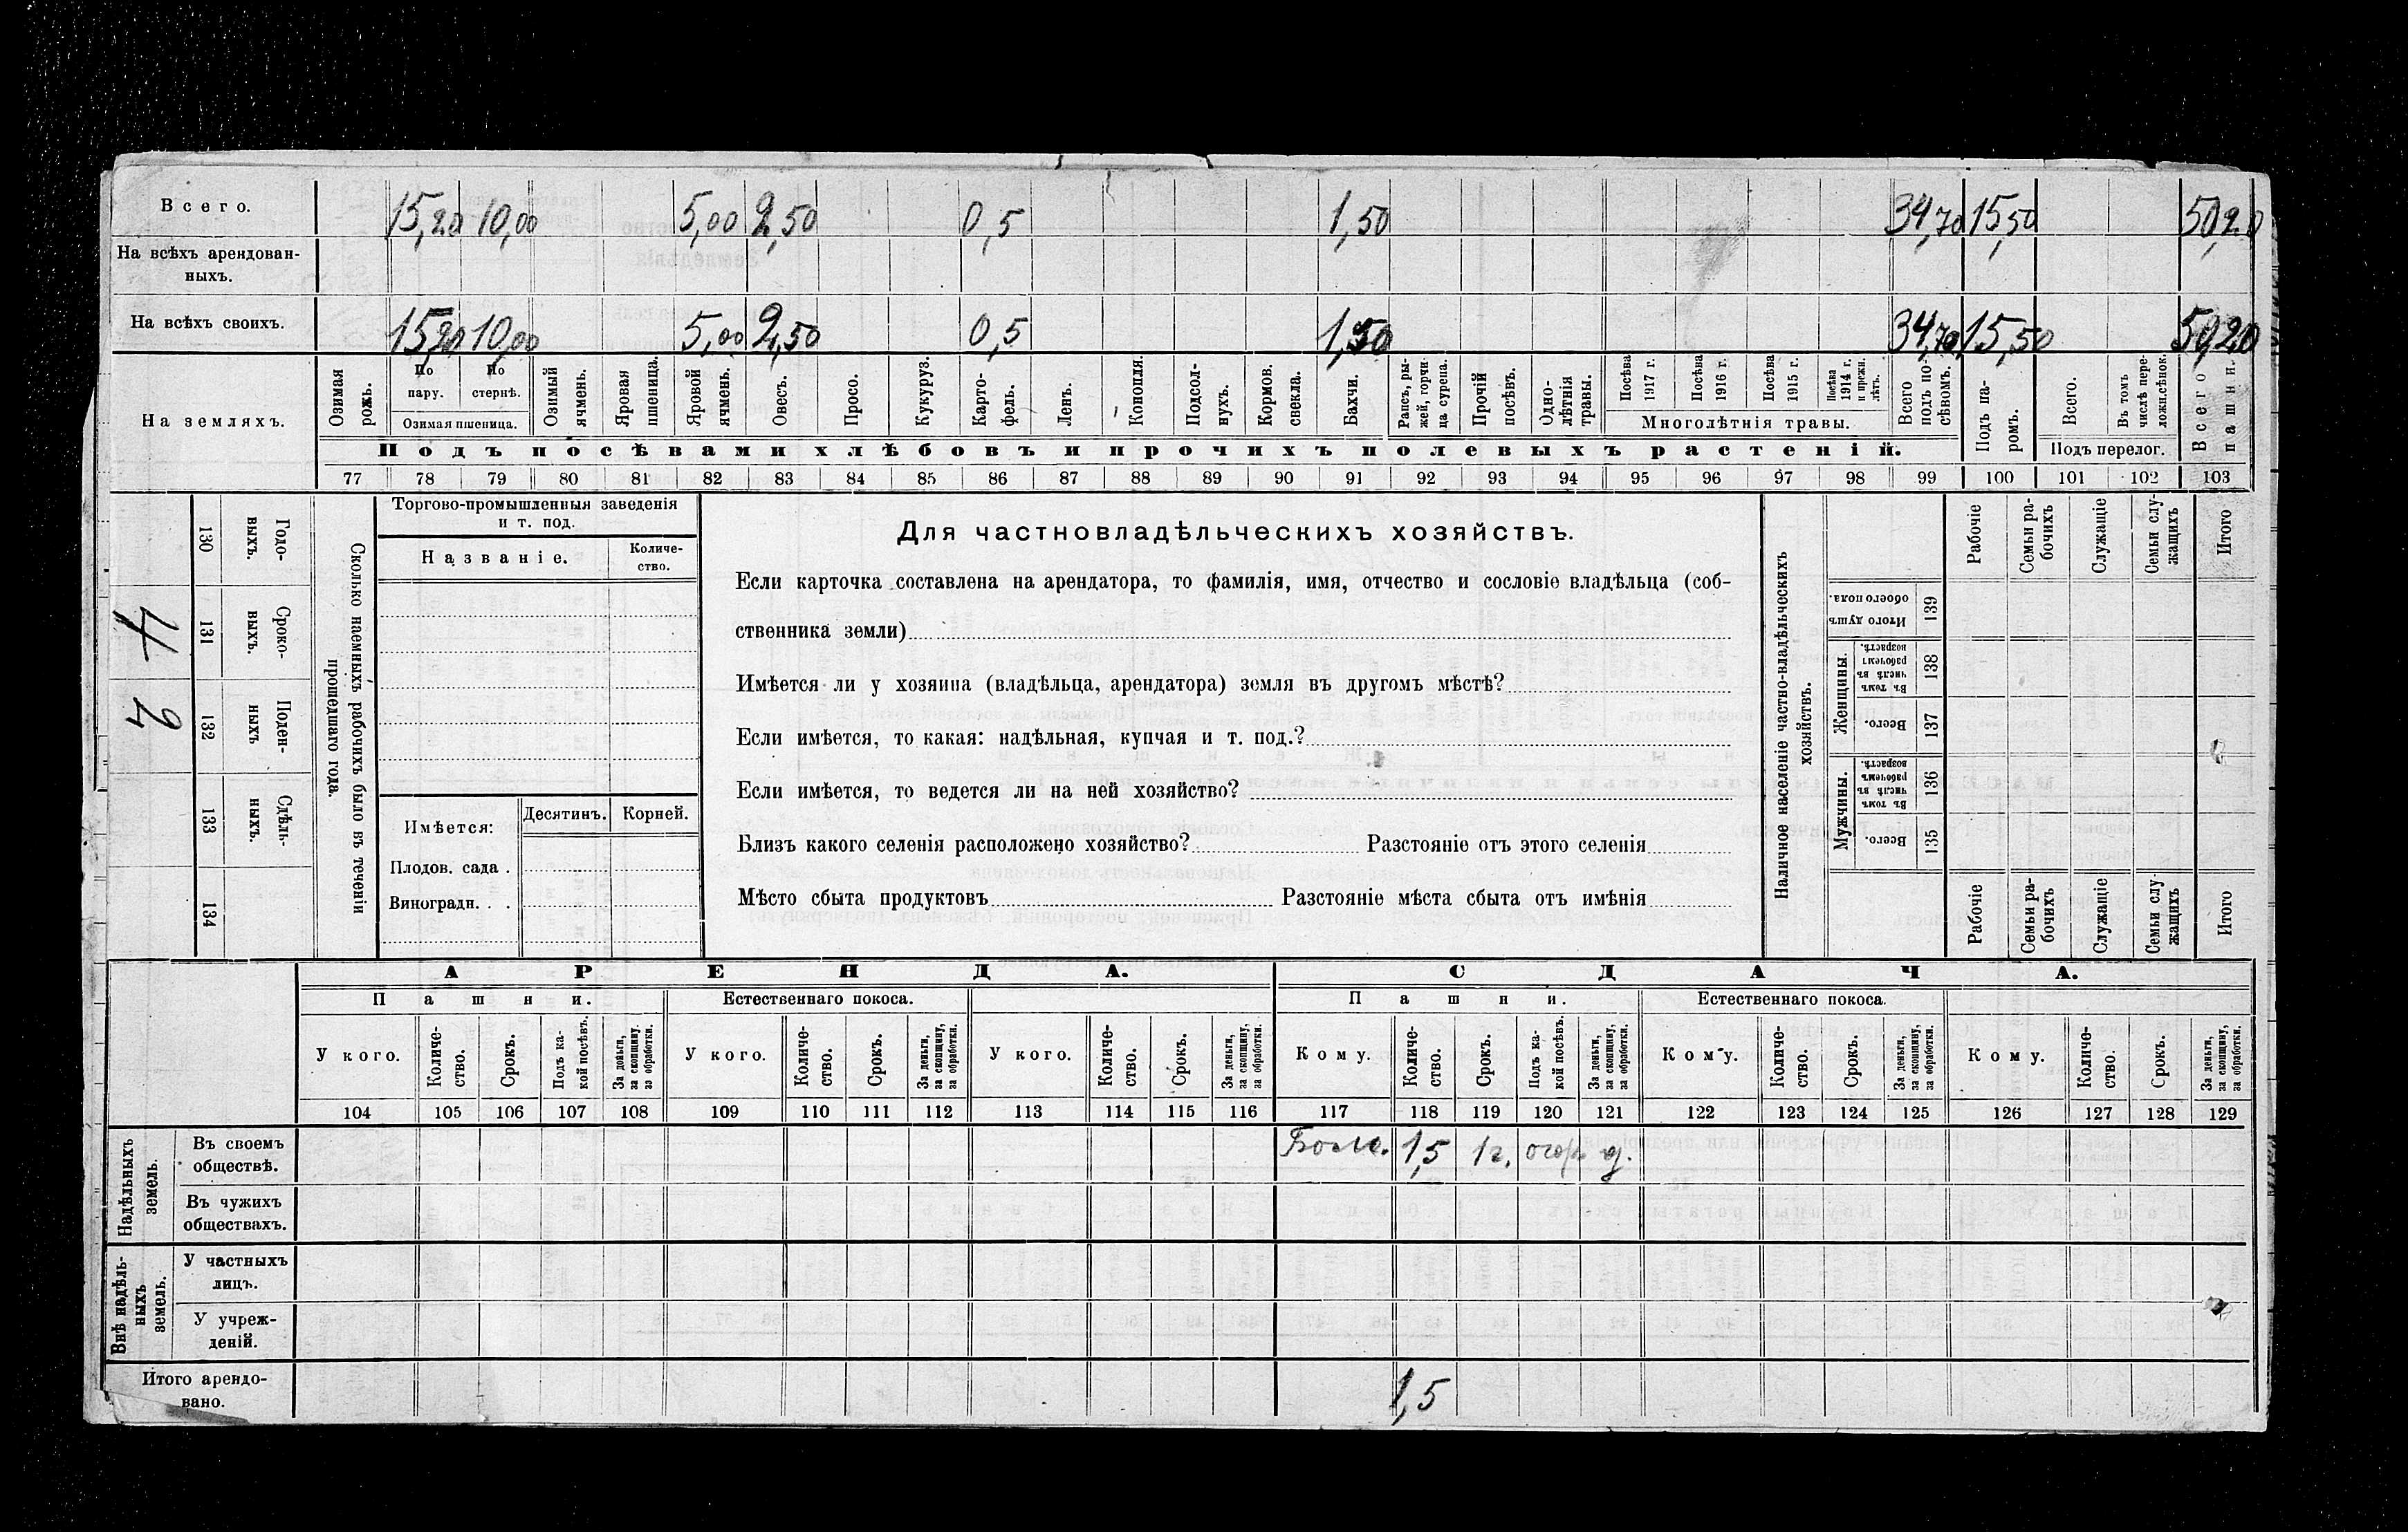 Всего. 15,20 10,00 5,00 2,50 0,5 1,50 34,70 15,50 50,20
На всѣхъ арендован-
ныхъ.
На всѣхъ своихъ. 15,20 10,00 5,00 2,50 0,5 1,50 34,70 15,50 50,20
На земляхъ.
Озимая рожь.
По пару.
По стернѣ.
Озимая пшеница.
Озимый ячмень.
Яровая пшеница.
Яровой ячмень.
Овесъ.
Просо.
Кукуруз.
Карто-
фель.
Ленъ.
Конопля.
Подсол-
нухъ.
Кормов. свекла.
Бахчи.
Рапсъ, ры-
жей, горчи-
ца сурепа.
Прочій посѣвъ.
Одно-
лѣтнія травы.
Посѣва 1917 г.
Посѣва 1916 г.
Посѣва 1915 г.
Посѣва 1914 г. и прежн. лѣтъ.
Многолѣтнія травы.
Всего подъ по-
сѣвомъ.
Подъ па-
ромъ.
Всего.
Въ томъ числѣ пере-
ложн.сѣнок.
Подъ перелог.
Всего пашни.
Подъ посѣвами хлѣбовъ и прочихъ полевыхъ растеній.
77 78 79 80 81 82 83 84 85 86 87 88 89 90 91 92 93 94 95 96 97 98 99 100 101 102 103
130 Годо-
выхъ.
131 Сроко-
выхъ.
132 Поден-
ныхъ
133 Сдѣль-
ныхъ.
134
Сколько наемныхъ рабочихъ было въ теченіи
прошедшаго года.
Торгово-промышленныя заведенія
и т. под.
Названіе.
Количе-
ство.
Имѣется:
Десятинъ. Корней.
Плодов. сада .
Виноградн. . .
Для частновладѣльческихъ хозяйствъ.
Если карточка составлена на арендатора, то фамилія, имя, отчество и сословіе владѣльца (соб-
ственника земли)
Имѣется ли у хозяина (владѣльца, арендатора) земля въ другомъ мѣстѣ?
Если имѣется, то какая: надѣльная, купчая и т. под.?
Если имѣется, то ведется ли на ней хозяйство?
Близъ какого селенія расположено хозяйство? Разстояніе отъ этого селенія
Мѣсто сбыта продуктовъ Разстояніе мѣста сбыта отъ имѣнія
Наличное населеніе частно-владѣльческихъ
хозяйствъ.
Рабочіе
Семьи ра-
бочихъ
Служащіе
Семьи слу-
жащихъ
Итого
Итого душъ обоего пола. 139
Женщины.
Въ томъ числѣ въ рабочемъ возрастѣ. 138
Всего. 137
Мужчины.
Въ томъ числѣ въ рабочемъ возрастѣ. 136
Всего. 135
Рабочіе
Семьи ра-
бочихъ
Служащіе
Семьи слу-
жащихъ
Итого
АРЕНДА. СДАЧА.
Пашни. Естественнаго покоса. Пашни. Естественнаго покоса.
У кого. Количе-
ство. Срокъ. Подъ ка-
кой посѣвъ. За деньги, за скопщину, за обработки.
У кого. Количе-
ство. Срокъ. За деньги, за скопщину, за обработки.
У кого. Количе-
ство. Срокъ. За деньги, за скопщину, за обработки.
Кому. Количе-
ство. Срокъ. Подъ ка-
кой посѣвъ. За деньги, за скопщину, за обработки.
Кому. Количе-
ство. Срокъ. За деньги, за скопщину, за обработки.
Кому. Количе-
ство. Срокъ. За деньги, за скопщину, за обработки.
104 105 106 107 108 109 110 111 112 113 114 115 116 117 118 119 120 121 122 123 124 125 126 127 128 129
Надѣльныхъ земель.
Въ своемъ
обществѣ. 1,5 1г. огор. д.
Въ чужихъ
обществахъ.
Внѣ надѣль-
ныхъ земель.
У частныхъ
лицъ.
У учреж-
деній.
Итого арендо-
вано. 1,5